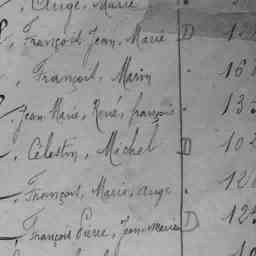 , Ange, Marie
, François, Jean, Marie D 12
, François, Marin . 16
, Jean, Marie, René, françois . 13
, Célestin, Michel D 10
, François, Marie, Ange . 12
, François Pierre, Jean-Marie D 12